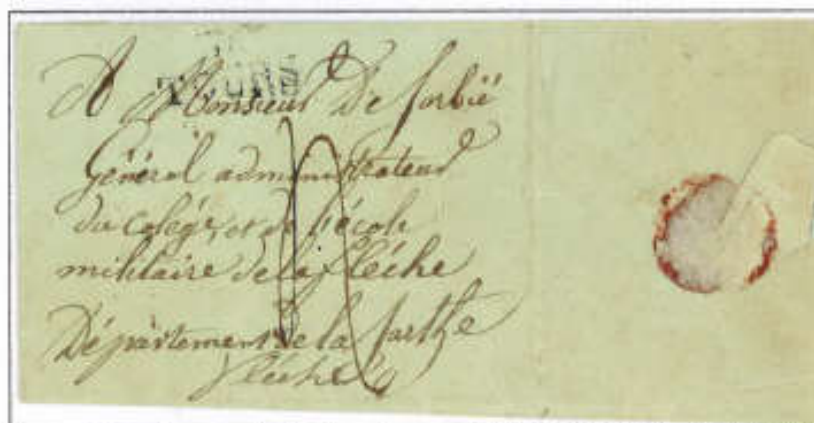 TOURS
A Monsieur De sorbié
Général administrateur
du colége, et de l'école
militaire de la fléche
Département de la sarthe
fléche